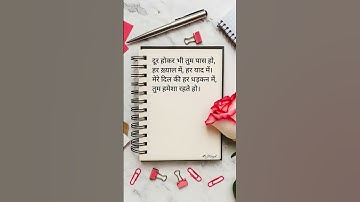 दूर होकर भी तुम पास हो,
हर ख़्याल में, हर याद में।
मेरे दिल की हर धड़कन में,
तुम हमेशा रहते हो।